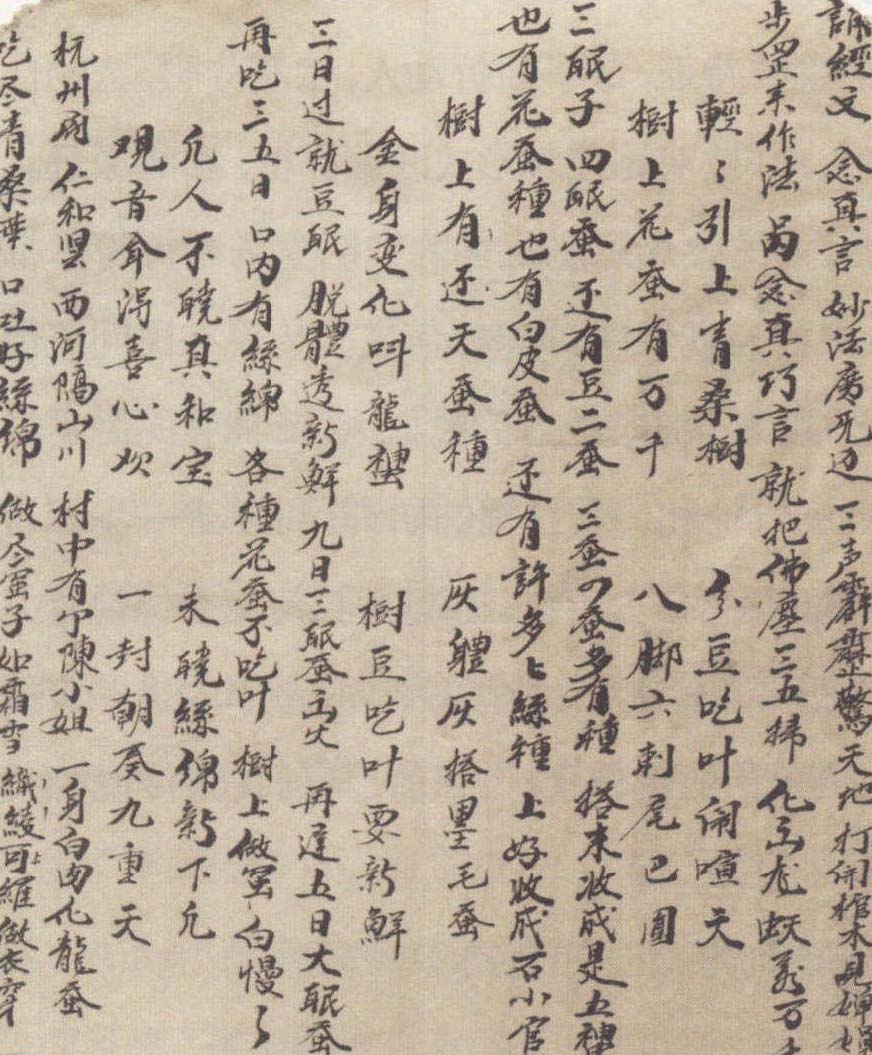 誦經文 念真言 妙法 无边 三声霹靂惊天地 打開棺木見婵娟
步罡来作法 念真巧言 就把佛塵三五掃 化出 万千
輕〻引上青桑樹 分豆吃叶鬧喧天
樹上花蚕有万千 八脚六刺尾巴圓
三眠子 四眠蚕 还有豆二蚕 三蚕四蚕多有種 搭来收成是五種
也有花蚕種也有白皮蚕 还有許多〻絲種 上好收成石小官
樹上有还天蚕種 灰體灰搭墨毛蚕
金身变化叫龍蚕 樹豆吃叶要新鮮
三日过就豆眠 脱體透新鮮 九日三眠蚕出火 再逢五日大眠蚕
再吃三五日 口内有絲綿 各種花蚕不吃叶 樹上做 白慢〻
凢人不曉真和宝 未曉絲綿新下凢
观音 得喜心欢 一封朝奏九重天
杭州府 仁和县 西河隔山川 村中有个陳小姐 一身白肉化龍蚕
吃尽青桑葉 口吐好絲綿 做尽 子如霜雪 織綾 羅做衣穿